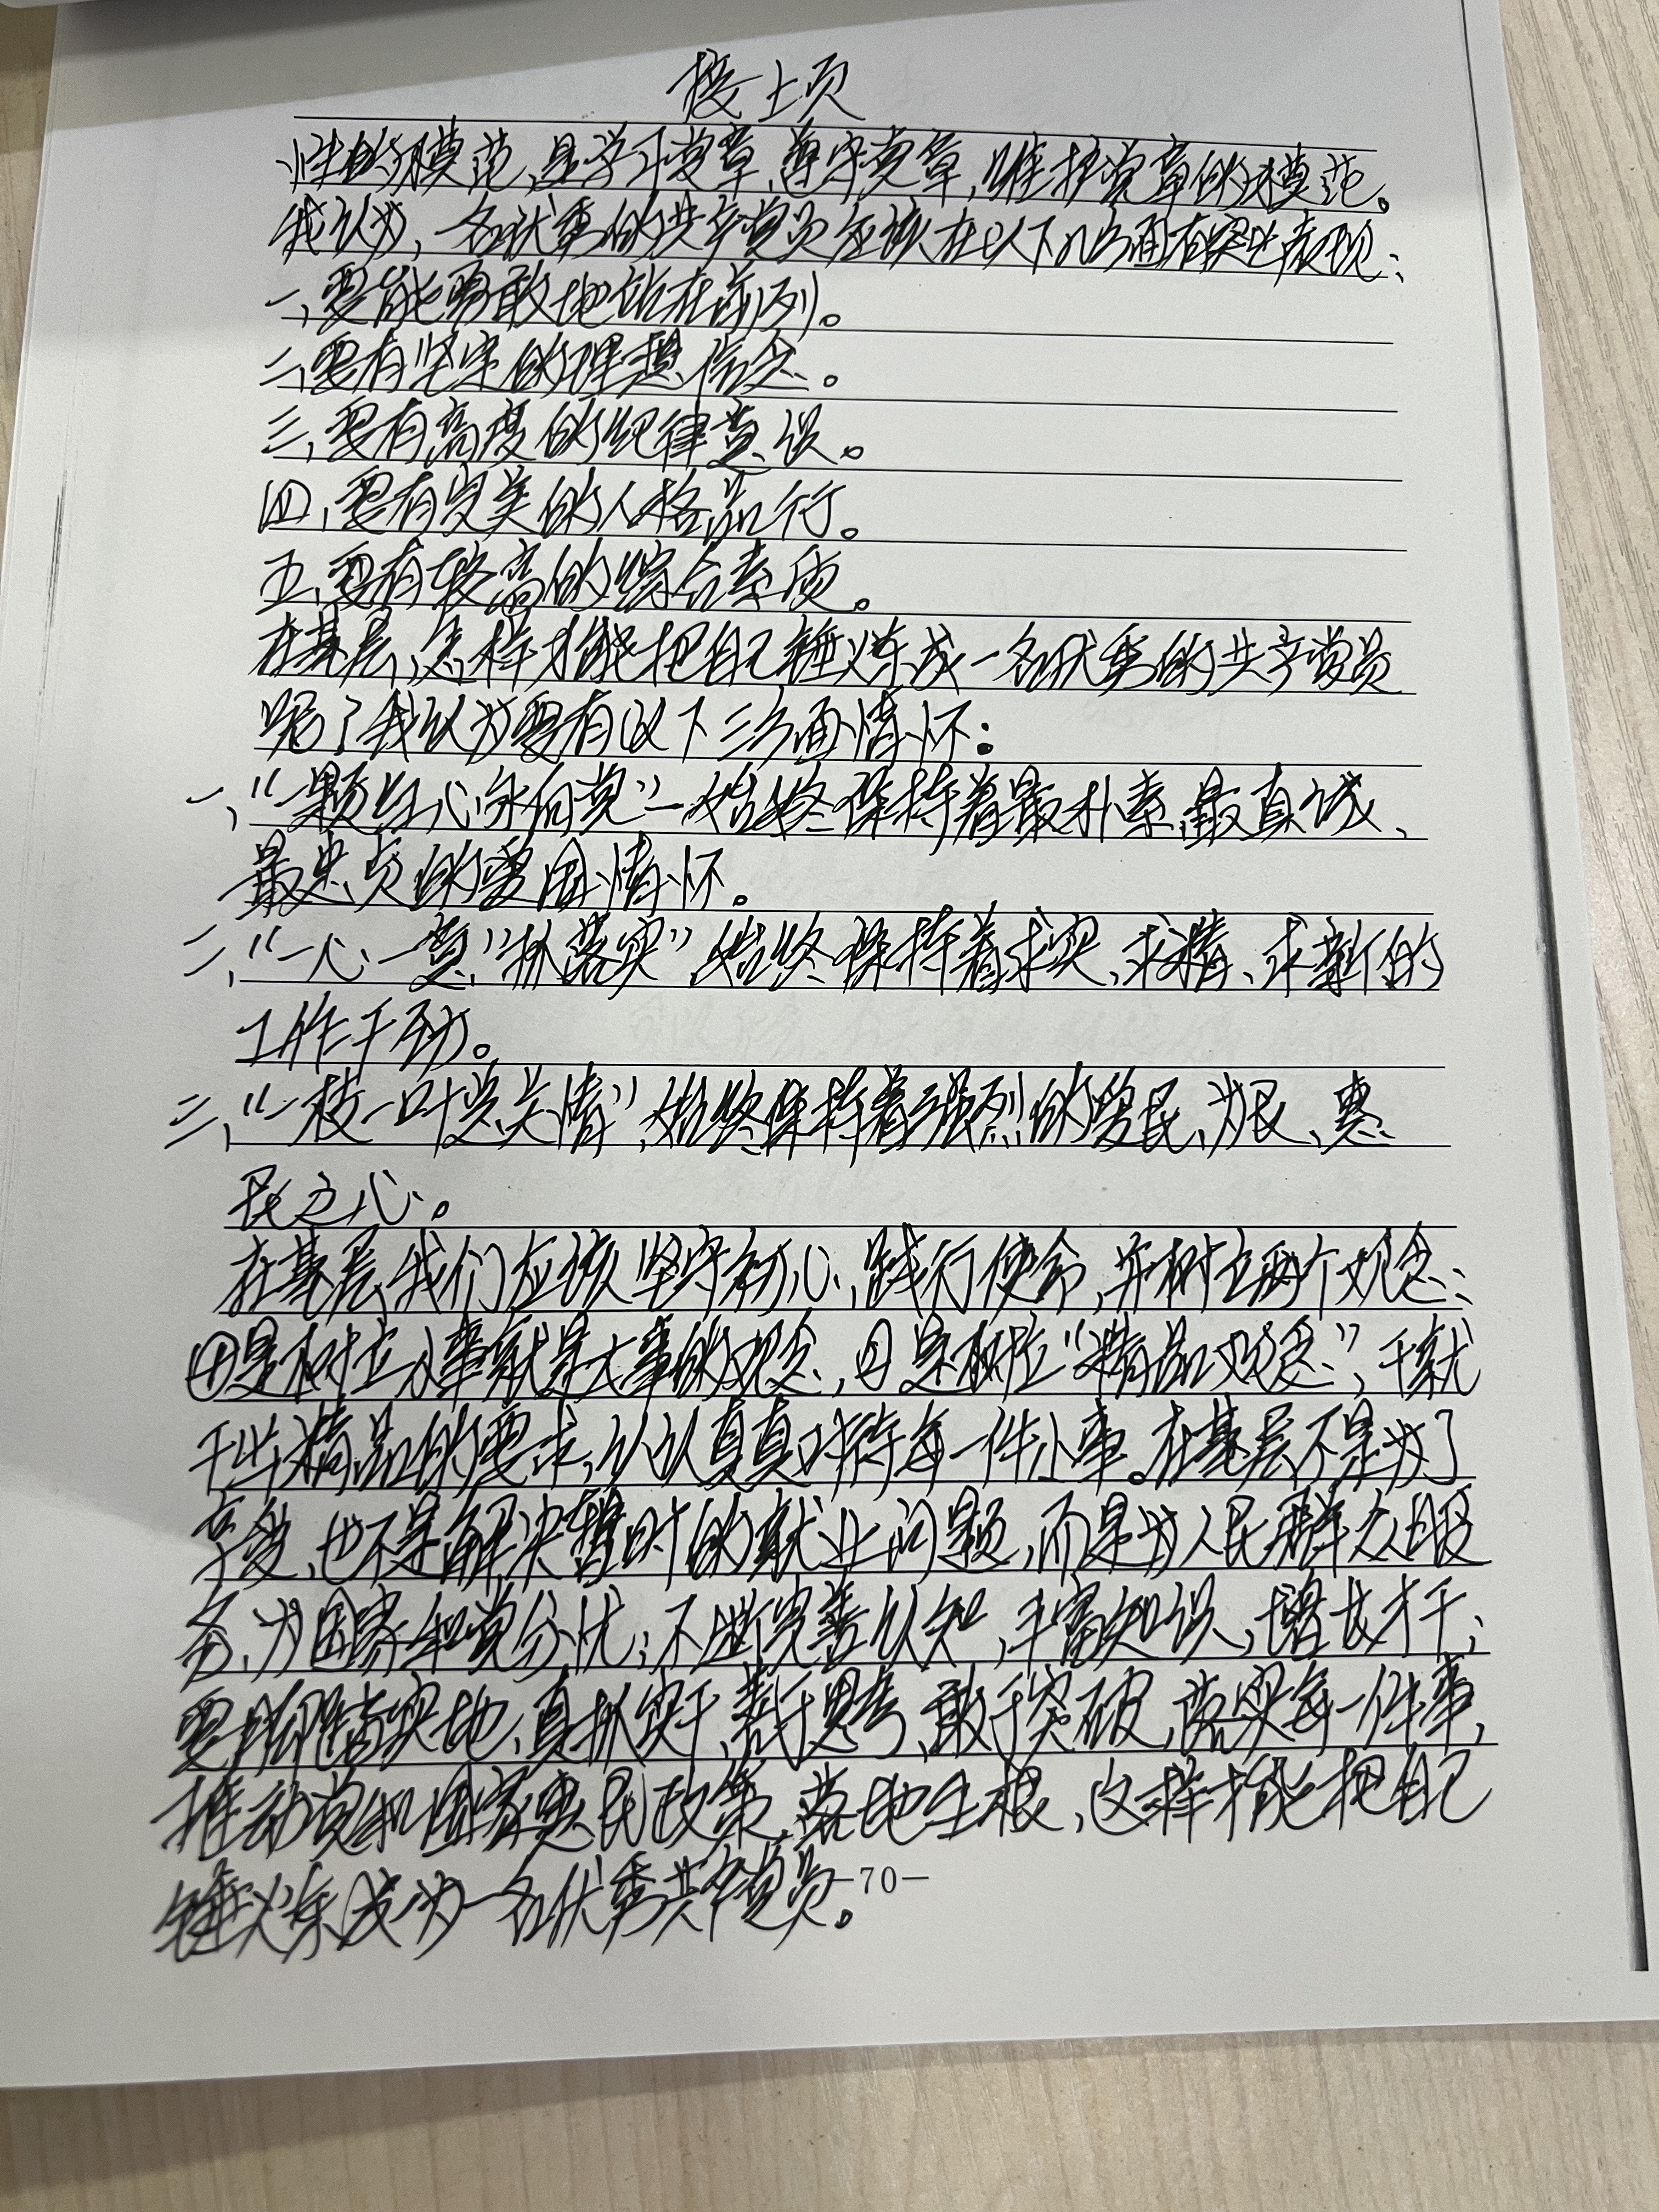 接上页
性的模范,是学习党章、遵守党章,维护党章的模范。
我认为,一名优秀的共产党员应该在以下几方面有突出表现:
一、要能勇敢地站在前列。
二、要有坚定的理想信念。
三、要有高度的纪律意识。
四、要有完美的人格品行。
五、要有较高的综合素质。
在基层,怎样才能把自己锤炼成一名优秀的共产党员
呢?我认为要有以下三方面情怀:
一、“一颗红心永向党”—始终保持着最朴素、最真诚、
最忠贞的爱国情怀。
二、“一心一意”抓落实”始终保持着求实、求精、求新的
工作干劲。
三、“一枝一叶总关情”,始终保持着强烈的爱民、为民、惠
民之心。
在基层,我们应该坚守初心,践行使命,并树立两个观念:
①是树立小事就是大事的观念,②是树立“精品观念”,干就
干出精品的要求,认认真真对待每一件小事。在基层不是为了
享受,也不是解决暂时的就业问题,而是为人民群众服
务,为国家和党分忧;不断完善认知,丰富知识,增长才干;
要脚踏实地、真抓实干、善于思考、敢于突破,落实每一件事,
推动党和国家惠民政策落地生根,这样才能把自己
锤炼成为一名优秀共产党员。
-70-